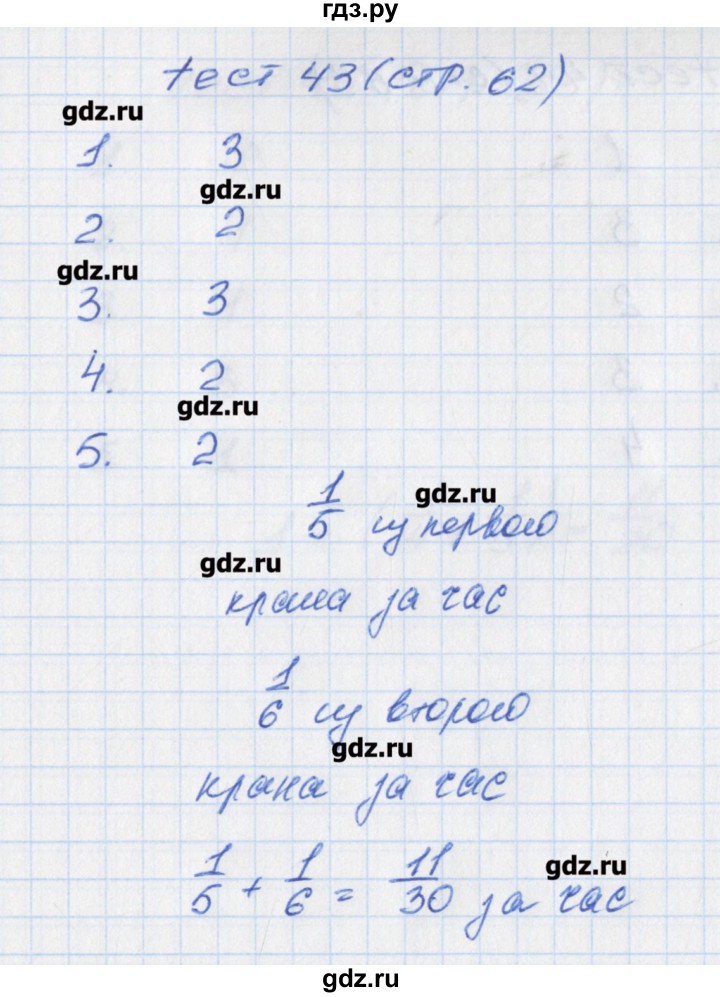 гдз.ру
тест 43 (стр. 62)
gdz.ru
1. 3
gdz.ru
2. 2
gdz.ru
3. 3
4. 2
gdz.ru
5. 2
1/5 из первого
gdz.ru
gdz.ru
крана за час
1/6 из второго
gdz.ru
крана за час
1/5 + 1/6 = 11/30 за час
gdz.ru
gdz.ru